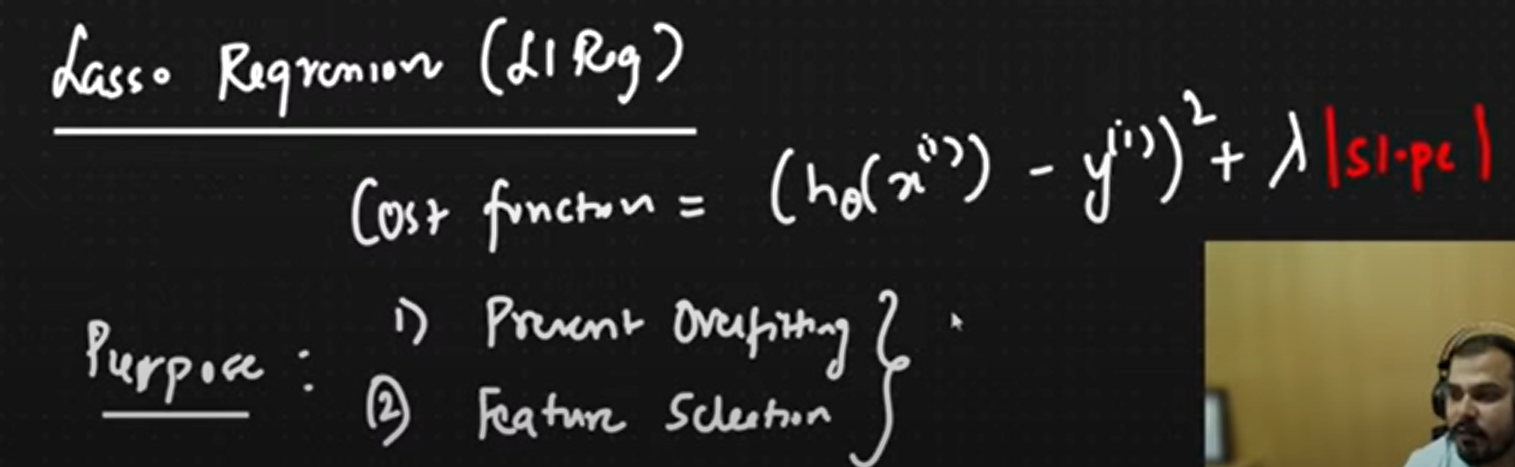 Lasso Regression (L1 Reg)
Cost function = (hθ(x⁽ⁱ⁾) - y⁽ⁱ⁾)² + λ |slope|
Purpose :
1) Prevent Overfitting
② Feature Selection